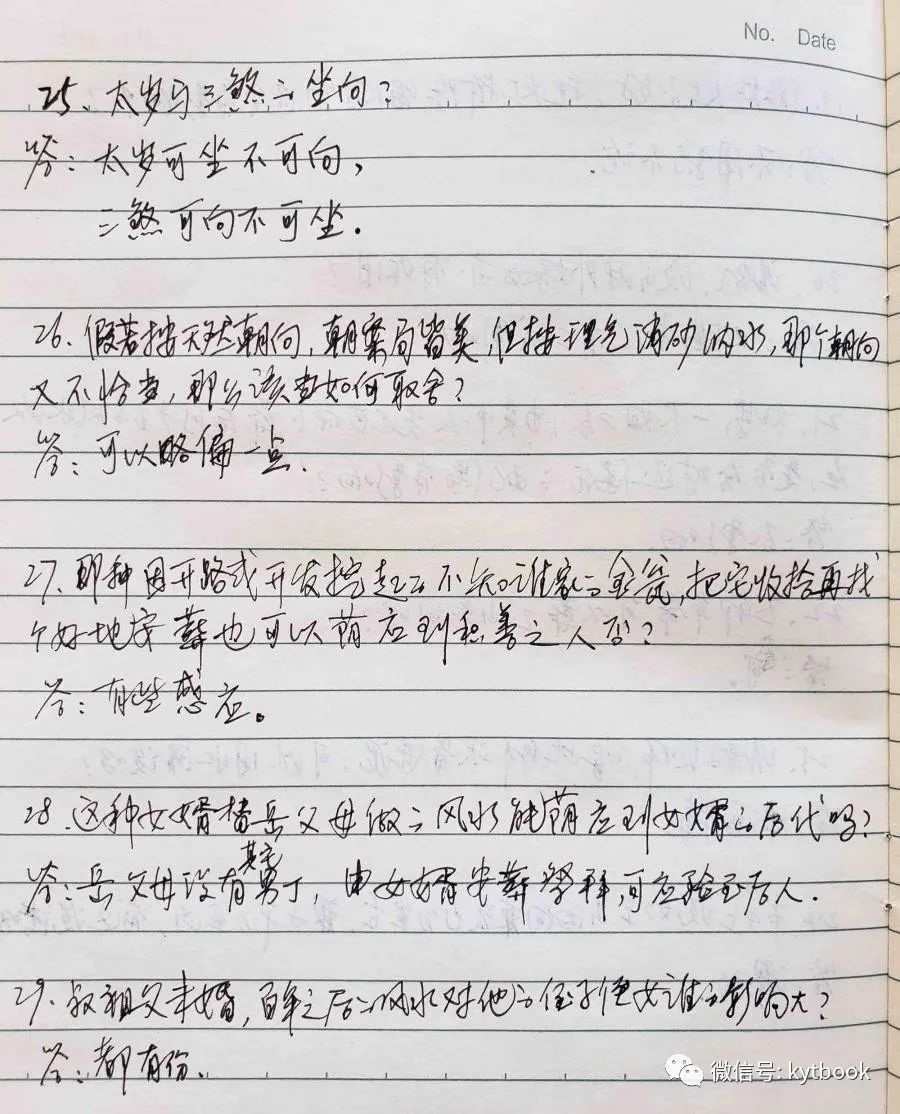 No. Date
25、太岁与三煞的坐向？
答：太岁可坐不可向，
三煞可向不可坐.
26、假若按天然朝向，朝案局皆美，但按理气消砂纳水，那个朝向
又不恰当，那么该当如何取舍？
答：可以略偏一点.
27、那种因开路或开发挖起的不知谁家的金瓮，把它收拾再找
个好地安葬也可以荫应到积善之人否？
答：有些感应。
28、这种女婿替岳父母做的风水能荫应到女婿的后代吗？
答：岳父母没有其它男丁，由女婿安葬祭拜，可应验至后人.
29、叔祖父未婚，百年之后的风水对他的侄子侄女谁的影响大？
答：都有份.
微信号: kytbook